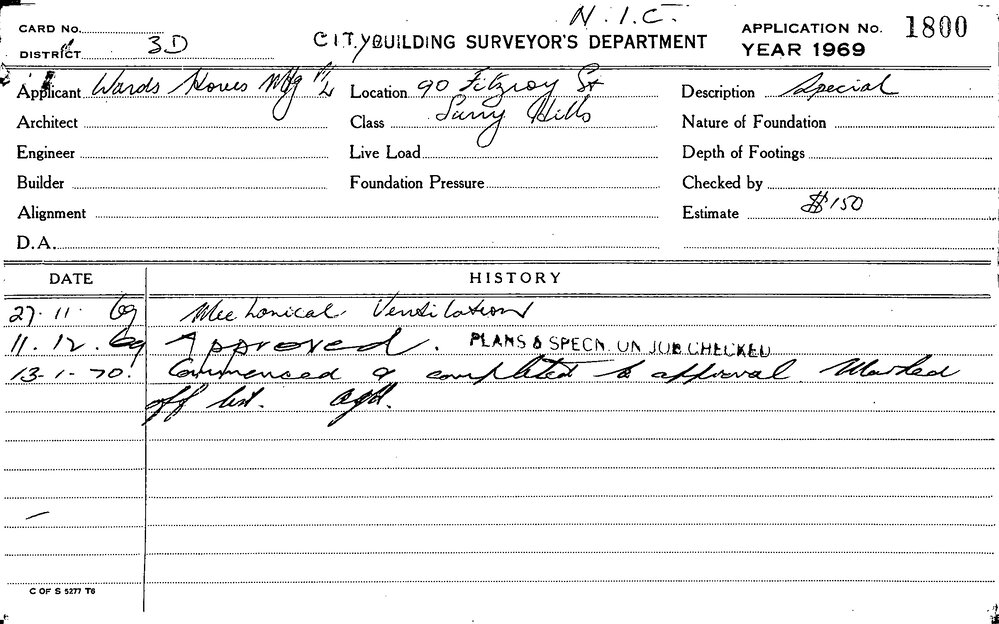 N.I.C.
CARD No.
DISTRICT 3D
CITY BUILDING SURVEYOR'S DEPARTMENT
APPLICATION No. 1800
YEAR 1969
Applicant Wards Hores Mfg P/L
Location 90 Fitzroy St
Surry Hills
Description Special
Architect
Class
Nature of Foundation
Engineer
Live Load
Depth of Footings
Builder
Foundation Pressure
Checked by
Alignment
Estimate $150
D.A.
DATE HISTORY
27.11.69 Mechanical Ventilation
11.12.69 Approved. PLANS & SPECN. ON JOB CHECKED
13-1-70. Commenced & completed to approval Marked
off list.
C OF S 5277 T6